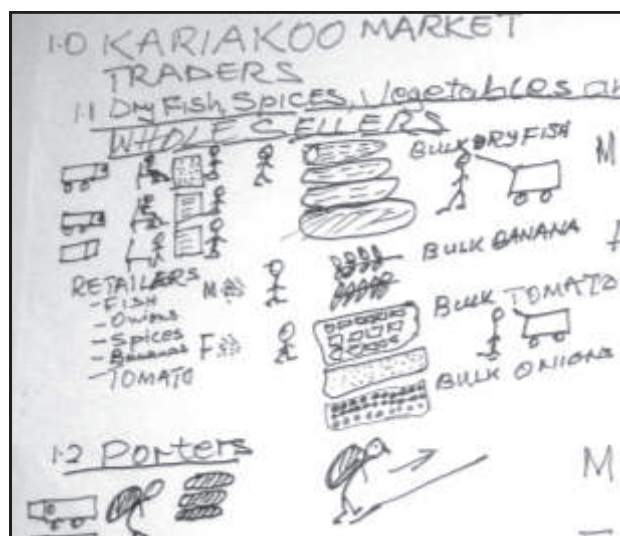 1.0 KARIAKOO MARKET
TRADERS
1.1 Dry Fish, Spices, Vegetables an
WHOLE SELLERS
BULK DRY FISH
M
BULK BANANA
RETAILERS
M
- FISH
- Onions
- Spices
- Bananas
F
- TOMATO
BULK TOMATO
BULK ONIONS
1.2 Porters
M